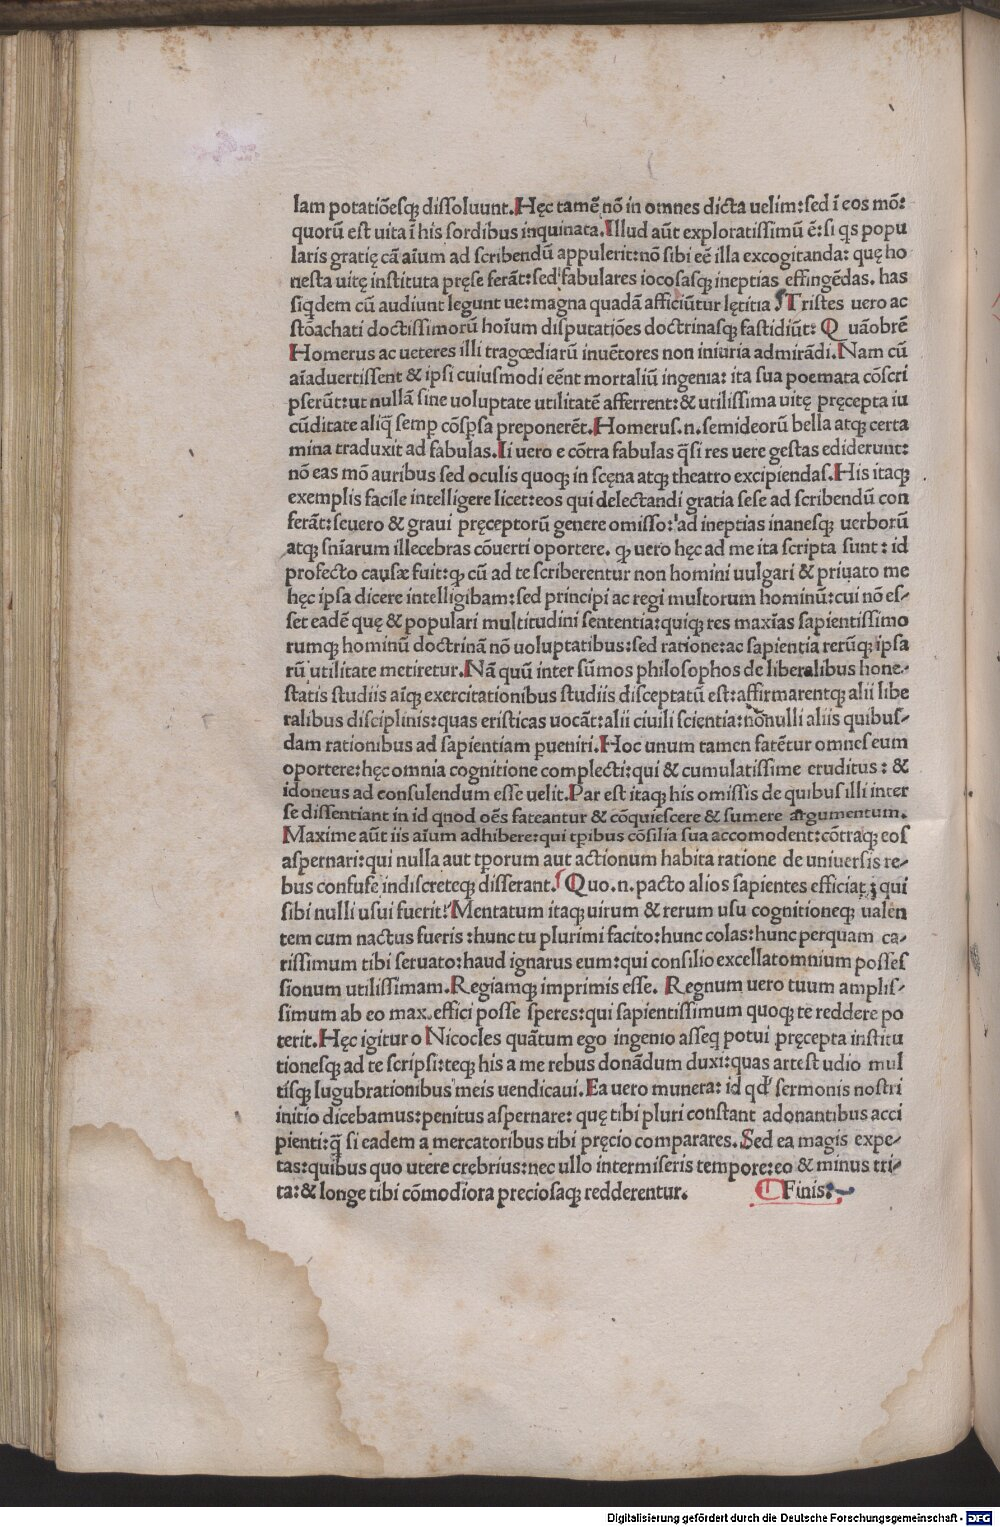 lam potatiōesqꝫ dissoluunt.Hęc tamē nō in omnes dicta uelim:sed ī eos mō:
quorū est uita ī his sordibus inquinata.Illud aūt exploratissimū ē:si qs popu
laris gratię cā aīum ad scribendū appulerit:nō sibi eē illa excogitanda: quę ho
nesta uitę instituta pręse ferāt:sed fabulares iocosasqꝫ ineptias effingēdas. has
siqdem cū audiunt legunt ue:magna quadā afficiūtur lętitia Tristes uero ac
stōachati doctissimorū hoīum disputatiōes doctrinasqꝫ fastidiūt: Q uāobrē
Homerus ac ueteres illi tragœdiarū inuētores non iniuria admirādi.Nam cū
aīaduertissent & ipsi cuiusmodi eēnt mortaliū ingenia: ita sua poemata cōscri
pserūt:ut nullā sine uoluptate utilitatē afferrent:& utilissima uitę pręcepta iu
cūditate aliq̄ semꝑ cōsꝑsa preponerēt.Homerus.n.semideorū bella atqꝫ certa
mina traduxit ad fabulas.Ii uero e cōtra fabulas q̄si res uere gestas ediderunt:
nō eas mō auribus sed oculis quoqꝫ in scęna atqꝫ theatro excipiendas.His itaqꝫ
exemplis facile intelligere licet:eos qui delectandi gratia sese ad scribendū con
ferāt:seuero & graui pręceptorū genere omisso:ad ineptias inanesqꝫ uerborū
atqꝫ sniarum illecebras cōuerti oportere. ꝙ uero hęc ad me ita scripta sunt: id
profecto causæ fuit:ꝙ cū ad te scriberentur non homini uulgari & priuato me
hęc ipsa dicere intelligibam:sed principi ac regi multorum hominū:cui nō es-
set eadē quę & populari multitudini sententia:quiqꝫ res maxīas sapientissimo
rumqꝫ hominū doctrinā nō uoluptatibus:sed ratione:ac sapientia rerūqꝫ ipsa
rū utilitate metiretur.Nā quū inter sūmos philosophos de liberalibus hone-
statis studiis aīqꝫ exercitationibus studiis disceptatū est:affirmarentqꝫ alii libe
ralibus disciplinis:quas eristicas uocāt:alii ciuili scientia:nōnulli aliis quibus-
dam rationibus ad sapientiam ꝑueniri.Hoc unum tamen fatētur omnes eum
oportere:hęc omnia cognitione complecti:qui & cumulatissime eruditus: &
idoneus ad consulendum esse uelit.Par est itaqꝫ his omissis de quibus illi inter
se dissentiant in id qnod oēs fateantur & cōquiescere & sumere argumentum.
Maxime aūt iis aīum adhibere:qui tꝑibus cōsilia sua accomodent:cōtraqꝫ eos
aspernari:qui nulla aut tꝑorum aut actionum habita ratione de uniuersis re-
bus confuse indiscreteqꝫ disserant. Quo.n.pacto alios sapientes efficiat ; qui
sibi nulli usui fuerit? Mentatum itaqꝫ uirum & rerum usu cognitioneqꝫ ualen
tem cum nactus fueris :hunc tu plurimi facito:hunc colas:hunc perquam ca-
rissimum tibi seruato:haud ignarus eum:qui consilio excellat omnium posses
sionum utilissimam.Regiamqꝫ imprimis esse. Regnum uero tuum amplis-
simum ab eo max. effici posse speres:qui sapientissimum quoqꝫ te reddere po
terit.Hęc igitur o Nicocles quātum ego ingenio asseqꝫ potui pręcepta institu
tionesqꝫ ad te scripsi:teqꝫ his a me rebus donādum duxi:quas artest udio mul
tisqꝫ lugubrationibus meis uendicaui.Ea uero munera: id qd̓ sermonis nostri
initio dicebamus:penitus aspernare: quę tibi pluri constant adonantibus acci
pienti:q̄ si eadem a mercatoribus tibi pręcio comparares.Sed ea magis expe-
tas:quibus quo utere crebrius:nec ullo intermiseris tempore:eo & minus tri-
ta:& longe tibi cōmodiora preciosaqꝫ redderentur. Finis:
Digitalisierung gefördert durch die Deutsche Forschungsgemeinschaft - DFG